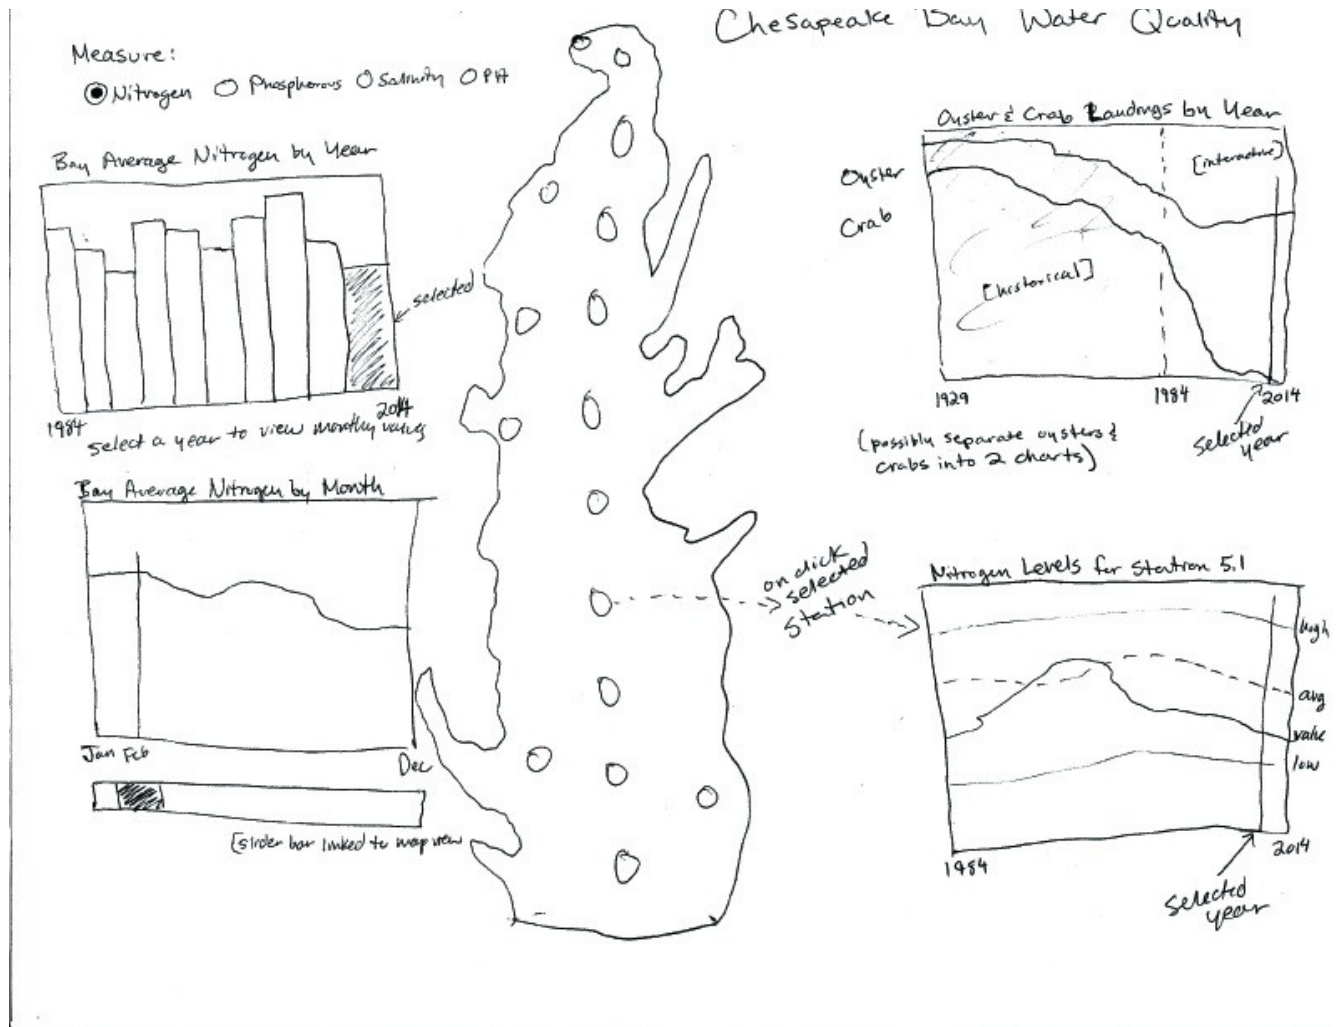 Chesapeake Bay Water Quality
Measure:
Nitrogen Phosphorous Salinity PH
Bay Average Nitrogen by Year
selected
1984
2014
select a year to view monthly values
Bay Average Nitrogen by Month
Jan Feb
Dec
[slider bar linked to map view
on click
selected
station
Oyster & Crab Landings by Year
[interactive]
Oyster
Crab
[historical]
1929
1984
2014
selected
year
(possibly separate oysters &
crabs into 2 charts)
Nitrogen Levels for Station 5.1
high
avg
value
low
1984
2014
selected
year